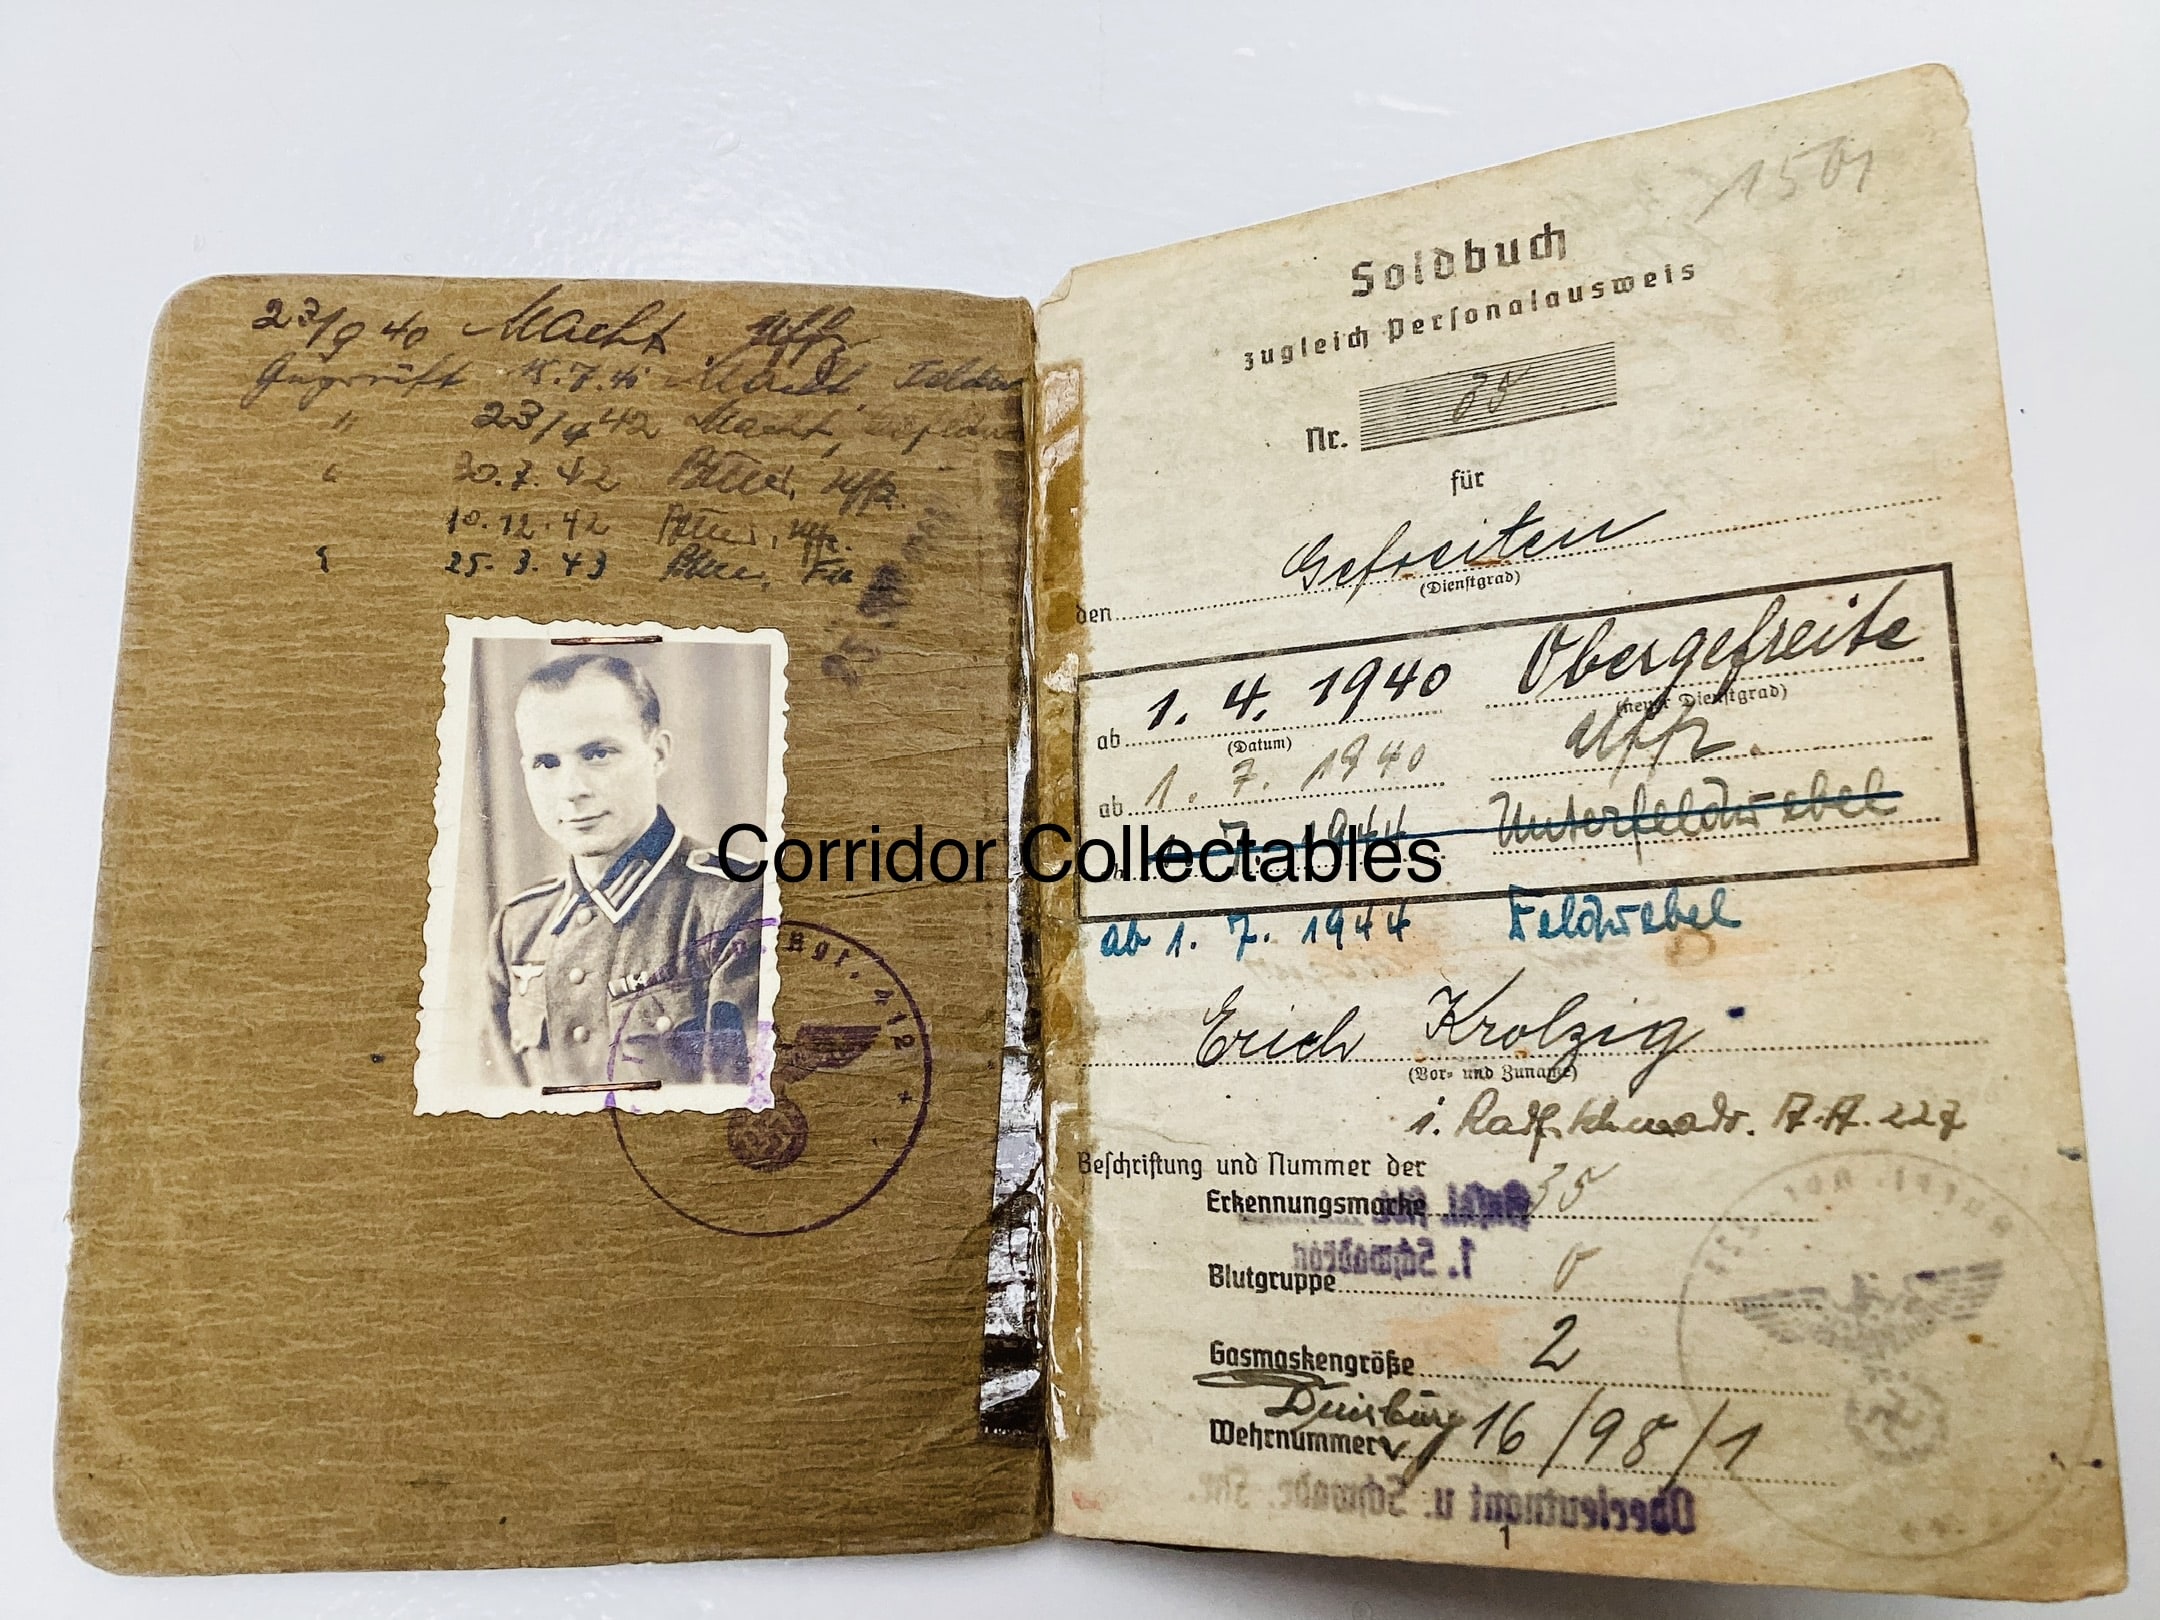 23/9 40 Macht, Uffz
Geprüft 15.7.41 Macht, Feldw
" 23/4 42 Macht,
" 30.7.42 Uffz.
10.12.42 Uffz.
" 25.3.43
Rgt. 412
1501
Soldbuch
zugleich Personalausweis
Nr. 35
für
den Gefreiten
(Dienstgrad)
ab 1. 4. 1940 Obergefreite
(Datum) (neuer Dienstgrad)
ab 1. 7. 1940 Uffz.
1. 7. 1944 Unterfeldwebel
Corridor Collectables
ab 1. 7. 1944 Feldwebel
Erich Krolzig
(Vor- und Zuname)
A.A. 227
Beschriftung und Nummer der
Erkennungsmarke 35
1. Schwadron
Blutgruppe O
Gasmaskengröße 2
Duisburg
Wehrnummer 16/98/1
Oberleutnant u. Schwadr. Fhr.
1